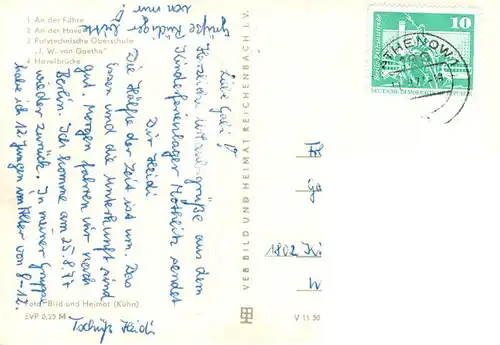 1 An der Fähre
2 An der Havel
3 Polytechnische Oberschule
„J. W. von Goethe"
4 Havelbrücke
Liebe Gabi!
Herzliche Urlaubsgrüße aus dem
Kinderferienlager Mothlitz sendet
Dir Heidi
Die Hälfte der Zeit ist um. Das
Essen und die Unterkunft sind
gut. Morgen fahren wir nach
Berlin. Ich komme am 25.8.77
wieder zurück. In meiner Gruppe
habe ich 12 Jungen im Alter von 8-12.
Tschüß Heidi
Grüße Rüdiger bitte
von mir!
Foto: Bild und Heimat (Kühn)
EVP 0,25 M
VEB BILD UND HEIMAT REICHENBACH i. V.
V 11 50
10
DEUTSCHE DEMOKRATISCHE REPUBLIK
THENOW 1
1802 Ki